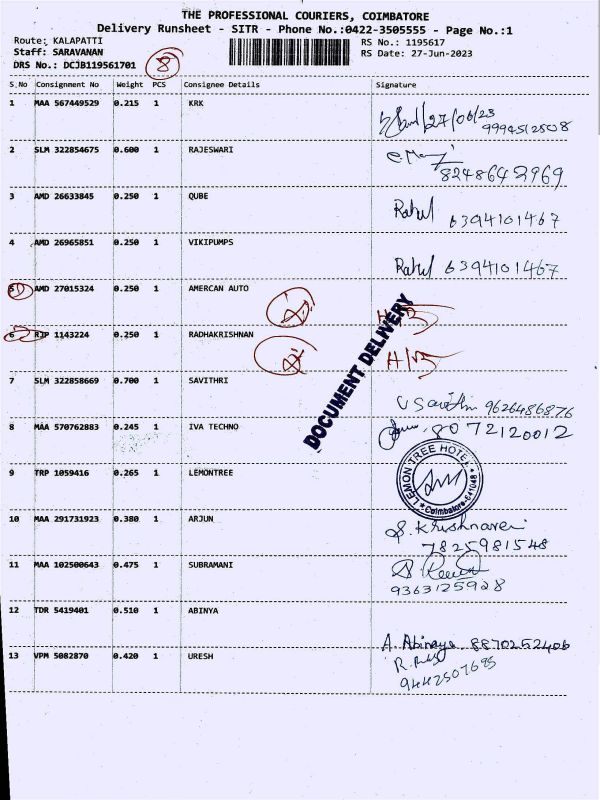 THE PROFESSIONAL COURIERS, COIMBATORE
Delivery Runsheet - SITR - Phone No.:0422-3505555 - Page No.:1
Route: KALAPATTI
Staff: SARAVANAN
DRS No.: DCJB119561701
8
RS No.: 1195617
RS Date: 27-Jun-2023
S.No Consignment No Weight PCS Consignee Details Signature
1 MAA 567449529 0.215 1 KRK
27/06/23
9994512508
2 SLM 322854675 0.600 1 RAJESWARI
8248642969
3 AMD 26633845 0.250 1 QUBE Rahul
6394101467
4 AMD 26965851 0.250 1 VIKIPUMPS
Rahul 6394101467
5 AMD 27015324 0.250 1 AMERCAN AUTO
6 RJP 1143224 0.250 1 RADHAKRISHNAN
DOCUMENT DELIVERY
7 SLM 322858669 0.700 1 SAVITHRI
9626486876
8 MAA 570762883 0.245 1 IVA TECHNO
8072120012
9 TRP 1059416 0.265 1 LEMONTREE
LEMON TREE HOTEL
Coimbatore-641048
10 MAA 291731923 0.380 1 ARJUN
7825981548
11 MAA 102500643 0.475 1 SUBRAMANI
9363125928
12 TDR 5419401 0.510 1 ABINYA
A. Abinaya 8870252406
13 VPM 5082870 0.420 1 URESH
9442507695